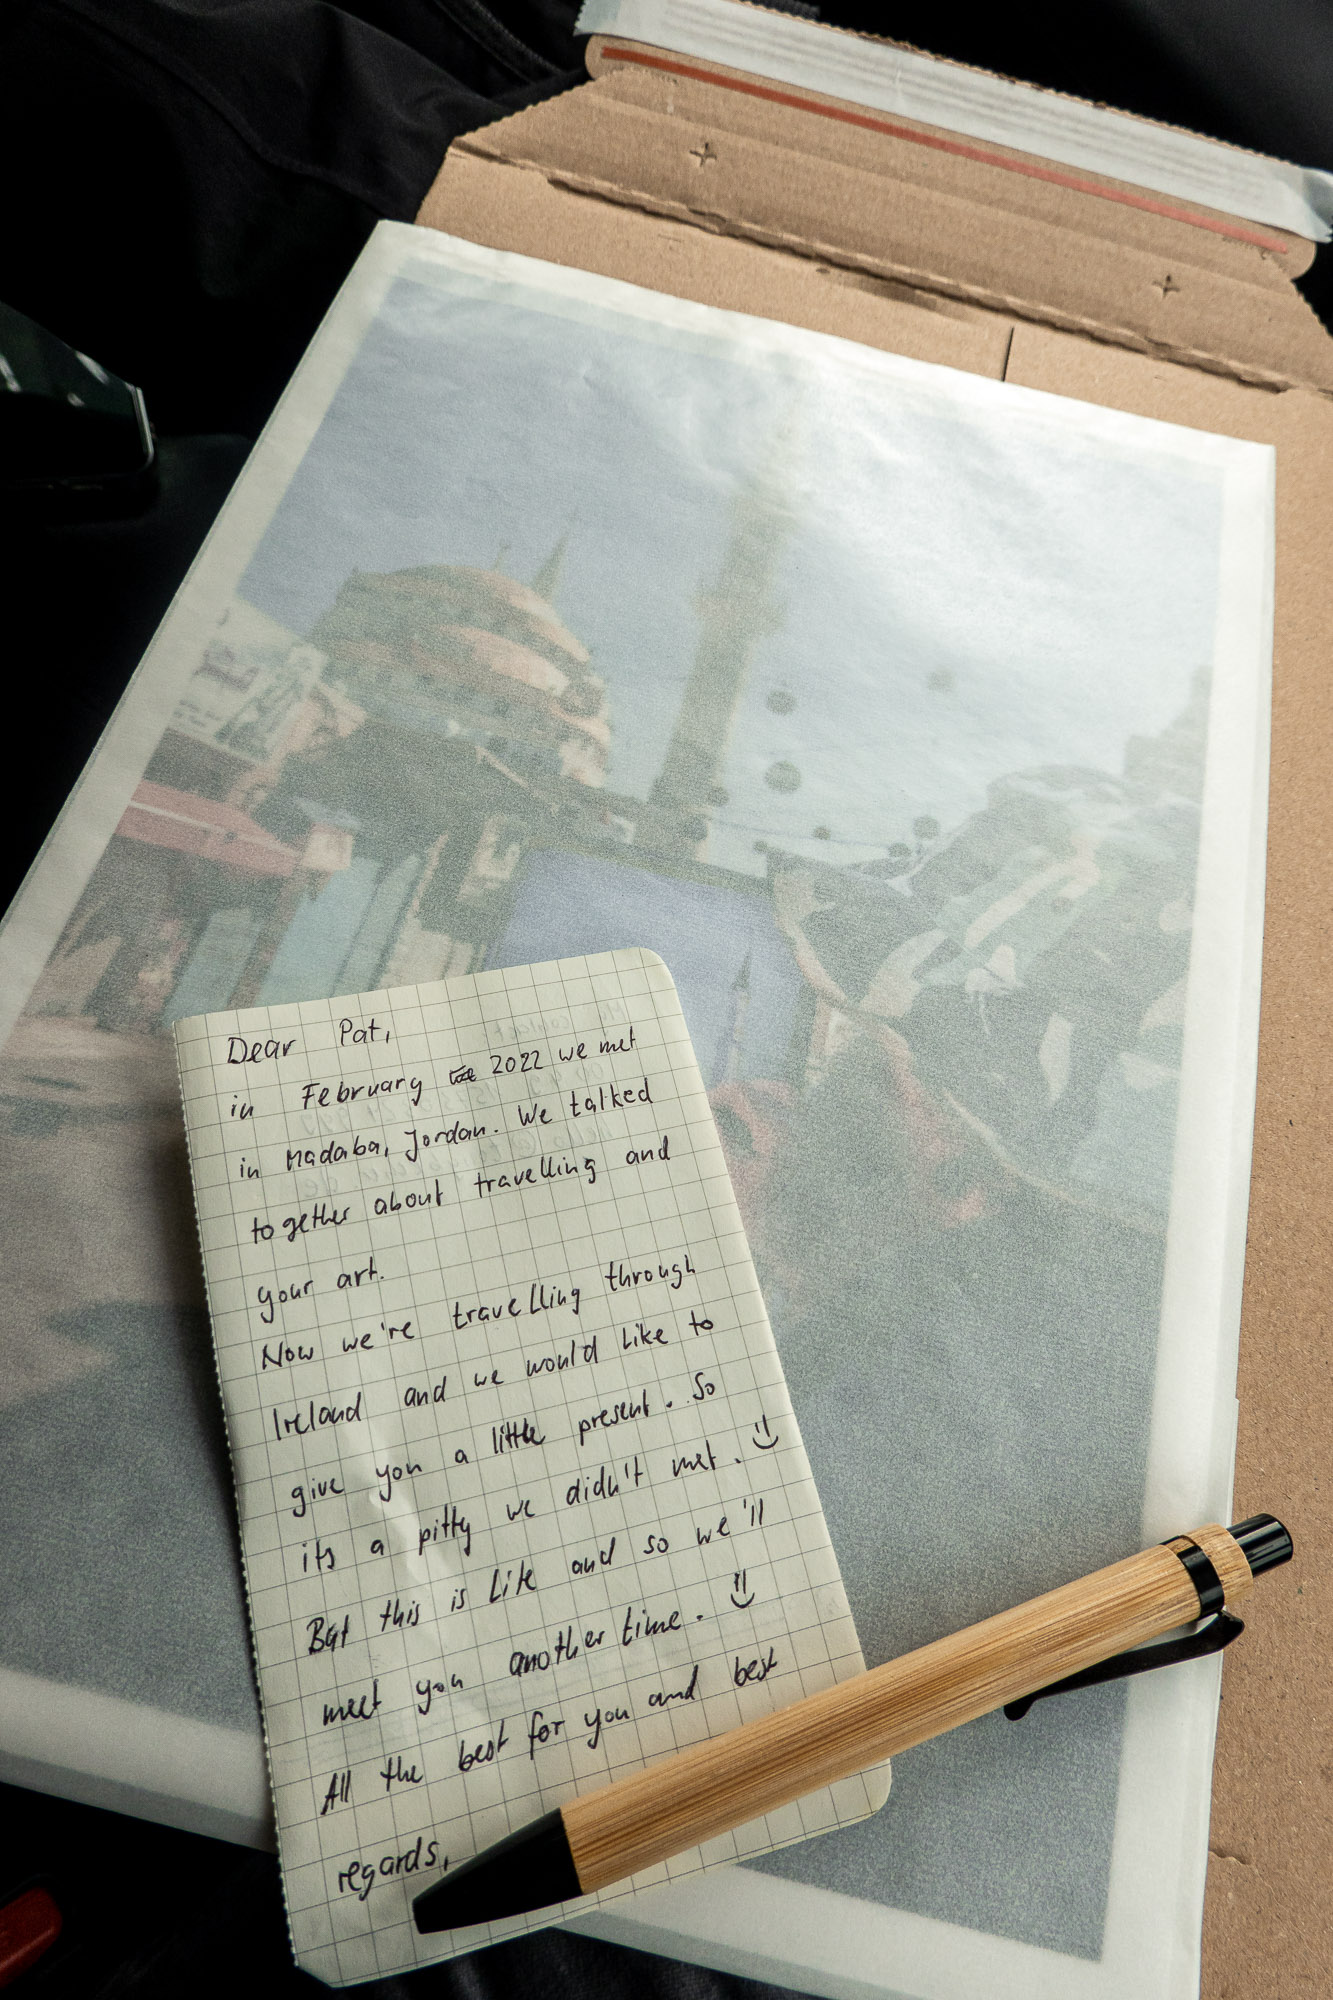 Dear Pat,
in February 2022 we met
in Madaba, Jordan. We talked
together about travelling and
your art.
Now we're travelling through
Ireland and we would like to
give you a little present. So
its a pitty we didn't met.
But this is Life and so we'll
meet you another time.
All the best for you and best
regards,